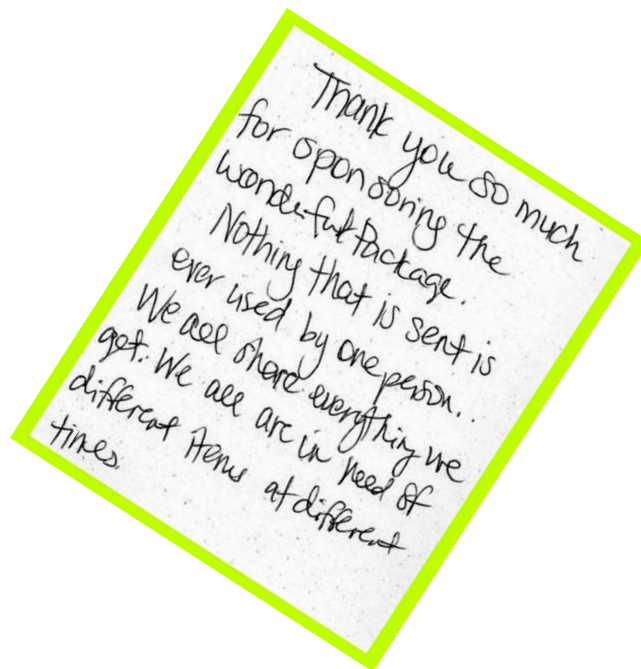 Thank you so much
for sponsoring the
wonderful Package.
Nothing that is sent is
ever used by one person.
We all share everything we
get. We all are in need of
different items at different
times.